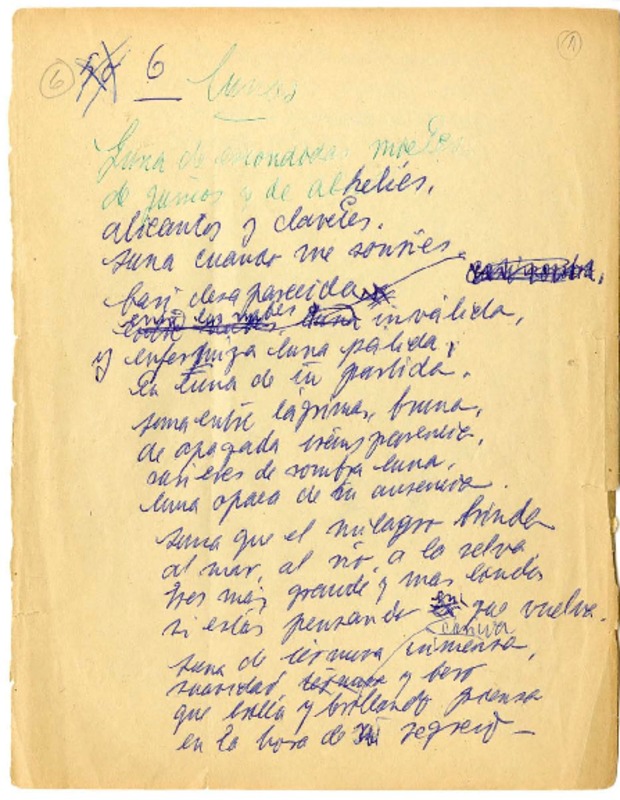 6 6 1
Lunas
Luna de escondidas mieles
de guiños y de alhelíes,
alicantos y claveles.
Luna cuando me sonríes
casi desaparecida
entre las nubes inválida,
y enfermiza luna pálida;
la luna de tu partida.
Luna entre lágrimas, bruna,
de apagada transparencia,
casi eres de sombra luna,
luna opaca de tu ausencia.
Luna que el milagro brinda
al mar, al río, a la selva,
eres más grande y mas linda
si estás pensando en que vuelva.
Luna de ternura inmensa,
suavidad y beso
que brilla y brillando piensa
en la hora de mi regreso